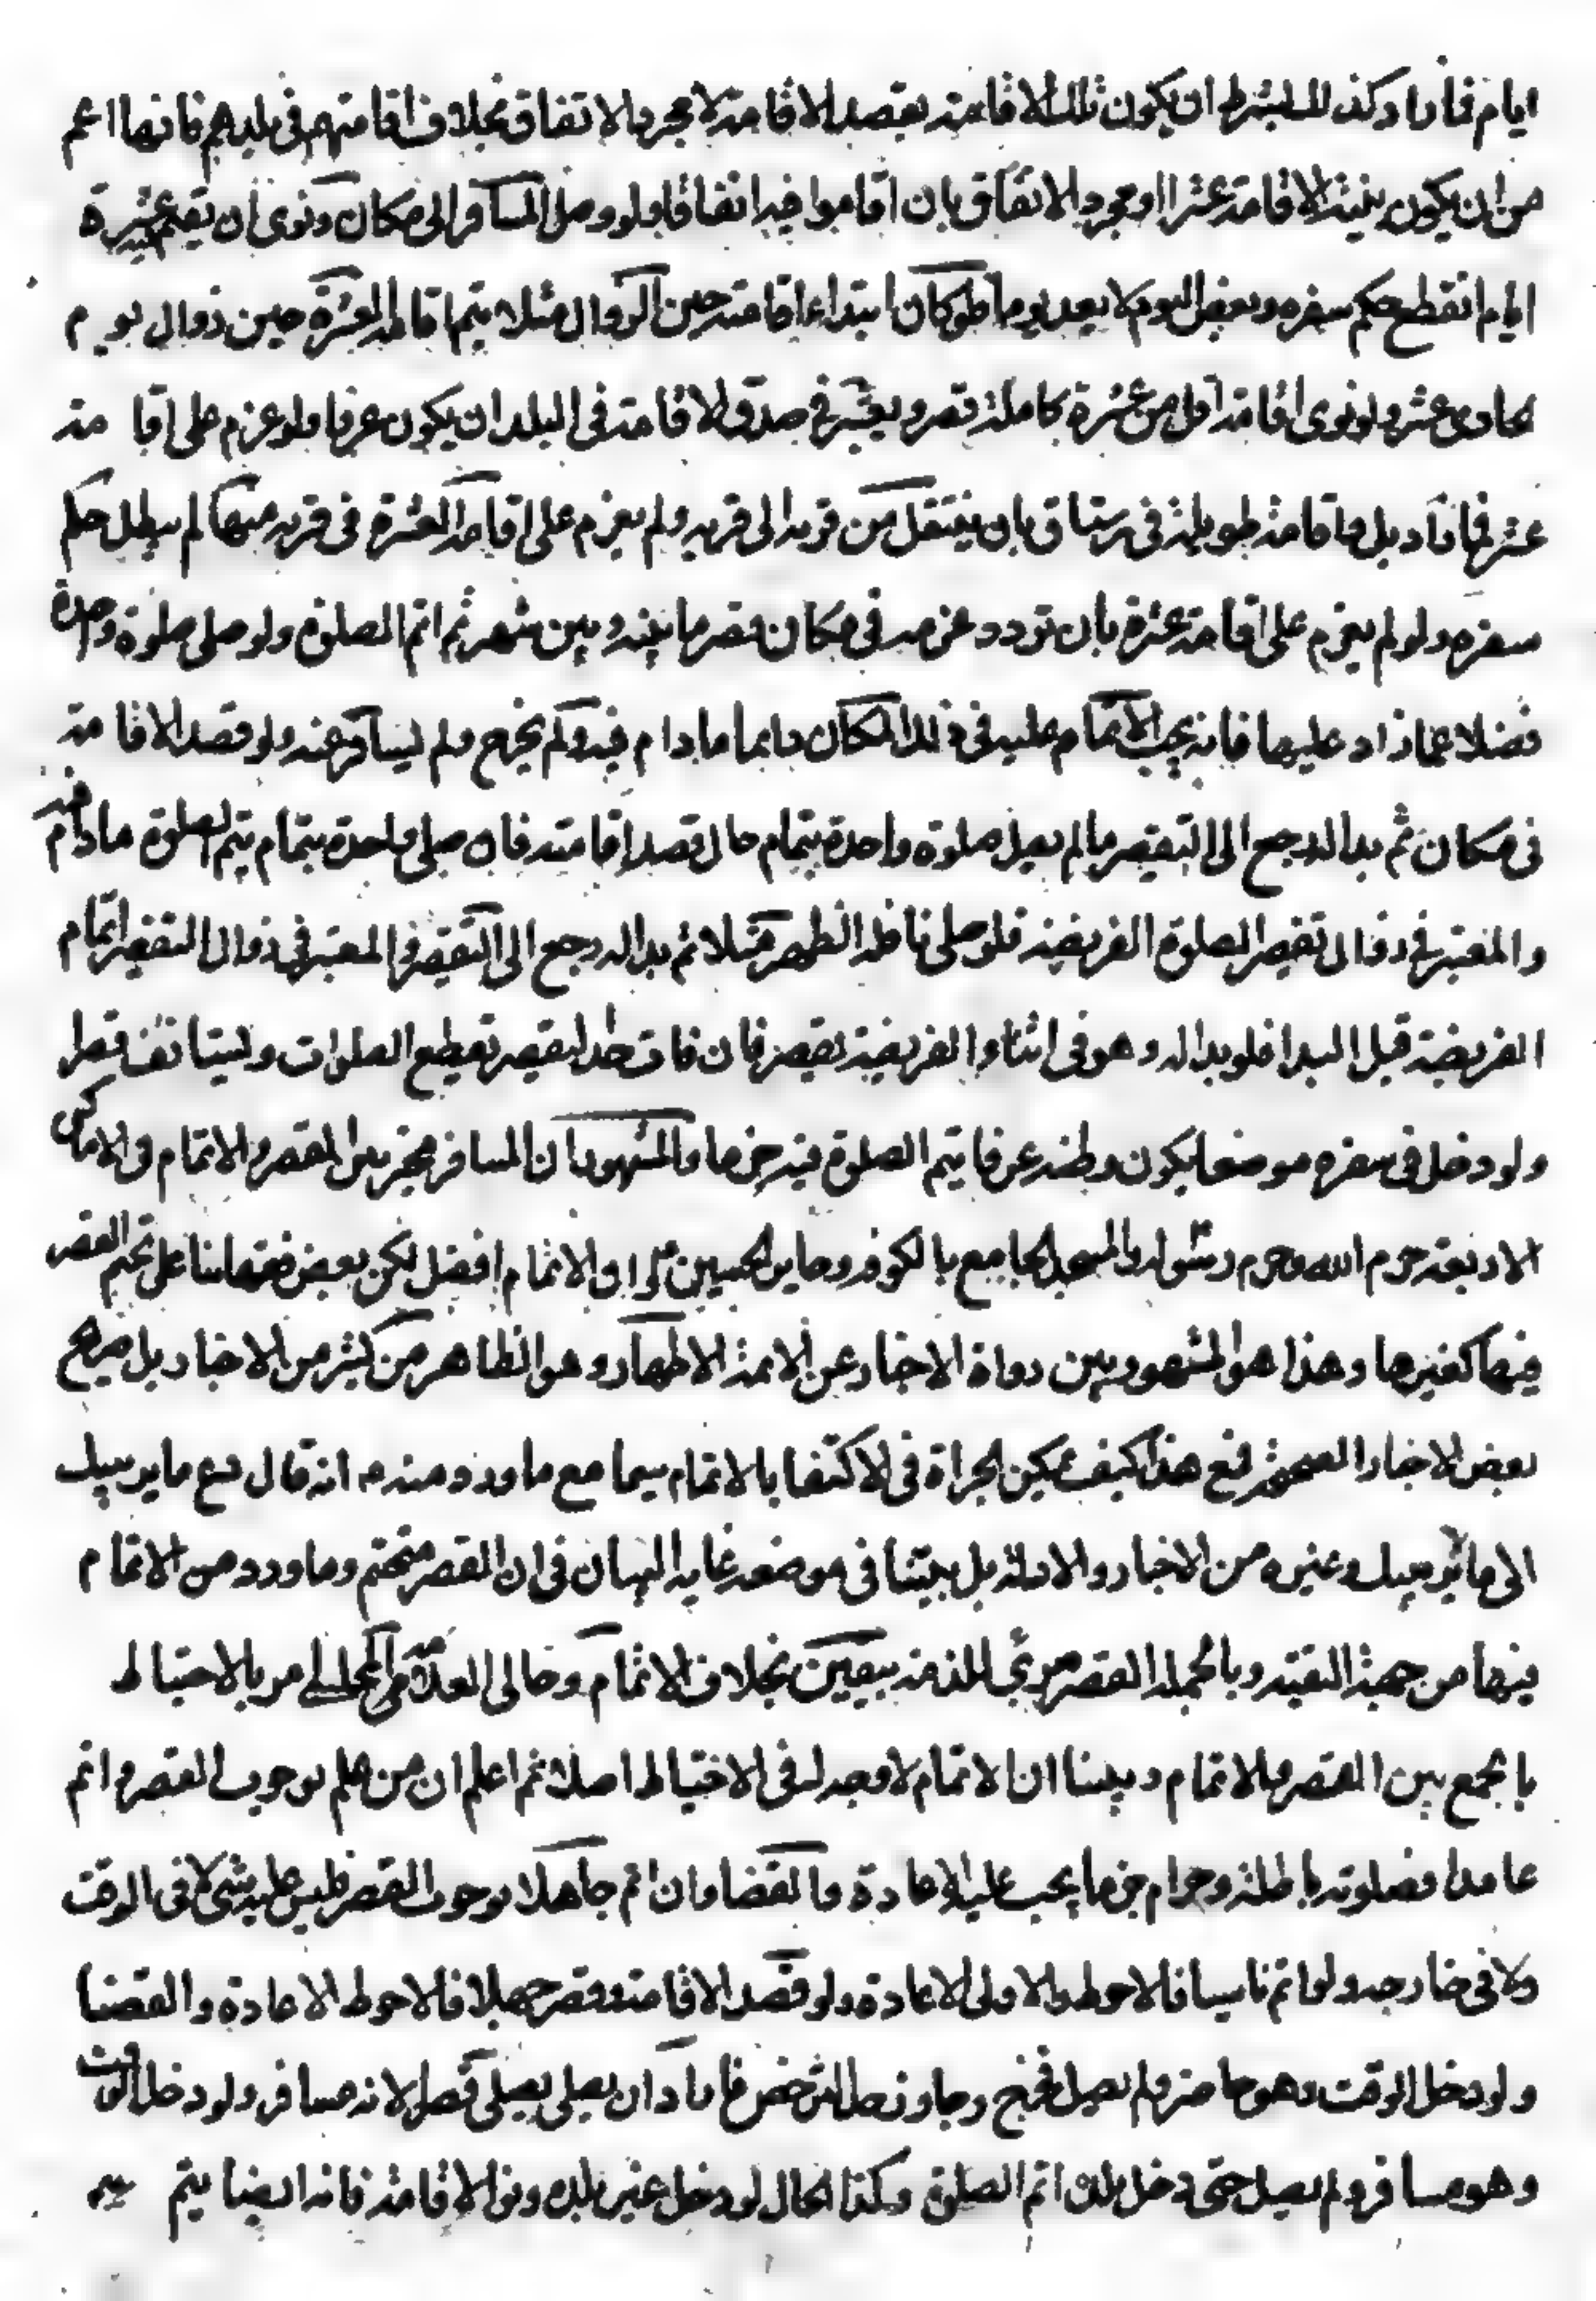 ايام فما زاد وكذلك يشترط ان يكون تلك الاقامة بقصد الاقامة لا مجرد الاتفاق بخلاف اقامتهم في بلدهم فانها اعم
من ان يكون بنية الاقامة عشرا او مجرد الاتفاق بان اقاموا فيه اتفاقا ولو وصل المسافر الى مكان ونوى ان يقيم فيه عشرة
ايام انقطع حكم سفره وبعض اليوم لا يعد يوما فلو كان ابتداء اقامته حين الزوال مثلا يتم اقامة العشرة حين زوال يوم
الحادى عشر ولو نوى اقامة اقل من عشرة كاملة قصر ويعتبر في صدق الاقامة في البلد ان يكون عرفا ولو عزم على اقامة
عشر فما زاد بل اقامة طويلة في رستاق بان ينتقل من قرية الى قرية ولم يعزم على اقامة العشرة في قرية منها لم يبطل حكم
سفره ولو لم يعزم على اقامة عشرة بان تردد عزمه في مكان قصر ما بينه وبين شهر ثم اتم الصلوة ولو صلى صلوة واحدة
فضلا عما زاد عليها فانه يجب الاتمام عليه في ذلك المكان دايما مادام فيه ولم يخرج ولم يسافر عنه ولو قصد الاقامة
في مكان ثم بدا له رجع الى التقصير ما لم يصل صلوة واحدة بتمام حال قصد اقامته فان صلى واحدة بتمام يتم الصلوة مادام فيه
والمعتبر في زوال تقصير الصلوة الفريضة فلو صلى نافلة الظهر مثلا ثم بدا له رجع الى التقصير والمعتبر في زوال التقصير اتمام
الفريضة قبل البدا فلو بدا له وهو في اثناء الفريضة يقصر فان فات حد التقصير تقطيع الصلوات ويستانف قصرا
ولو دخل في سفره موضعا يكون وطنه عرفا يتم الصلوة فيه جزما والمشهور ان المسافر مخير بين القصر والاتمام في الاماكن
الاربعة حرم الله وحرم رسوله والمسجد الجامع بالكوفة وحاير الحسين ع والاتمام افضل لكن بعض فقهائنا على تحتم القصر
فيها كغيرها وهذا هو المشهور بين رواة الاخبار عن الائمة الاطهار وهو الظاهر من كثير من الاخبار بل صريح
بعض الاخبار الصحيحة فمع هذا كيف يمكن الجراة في الاكتفا بالاتمام سيما مع ما ورد منه م انه قال دع ما يريبك
الى ما لا يريبك وغيره من الاخبار والادلة بل بينا في موضعه غاية البيان في ان القصر متحتم وما ورد من الاتمام
فيها من جهة التقية وبالجملة القصر مبرئ للذمة بيقين بخلاف الاتمام وخالى العلامة المجلسي امر بالاحتياط
بالجمع بين القصر والاتمام وبينا ان الاتمام لا وجه له في الاحتياط اصلا ثم اعلم ان من علم بوجوب القصر واتم
عامدا فصلوته باطلة وحرام جزما يجب عليه الاعادة والقضا وان اتم جاهلا بوجوب القصر فليس عليه شئ لا في الوقت
ولا في خارجه ولو اتم ناسيا فالاحوط والاولى الاعادة ولو قصد الاقامة وقصر جهلا فالاحوط الاعادة والقضا
ولو دخل الوقت وهو حاضر ولم يصل فخرج وجاوز حد الترخص فاراد ان يصلى يصلى قصرا لانه مسافر ولو دخل الوقت
وهو مسافر ولم يصل حتى دخل بلده اتم الصلوة وكذا الحال لو دخل غير بلده ونوى الاقامة فانه ايضا يتم